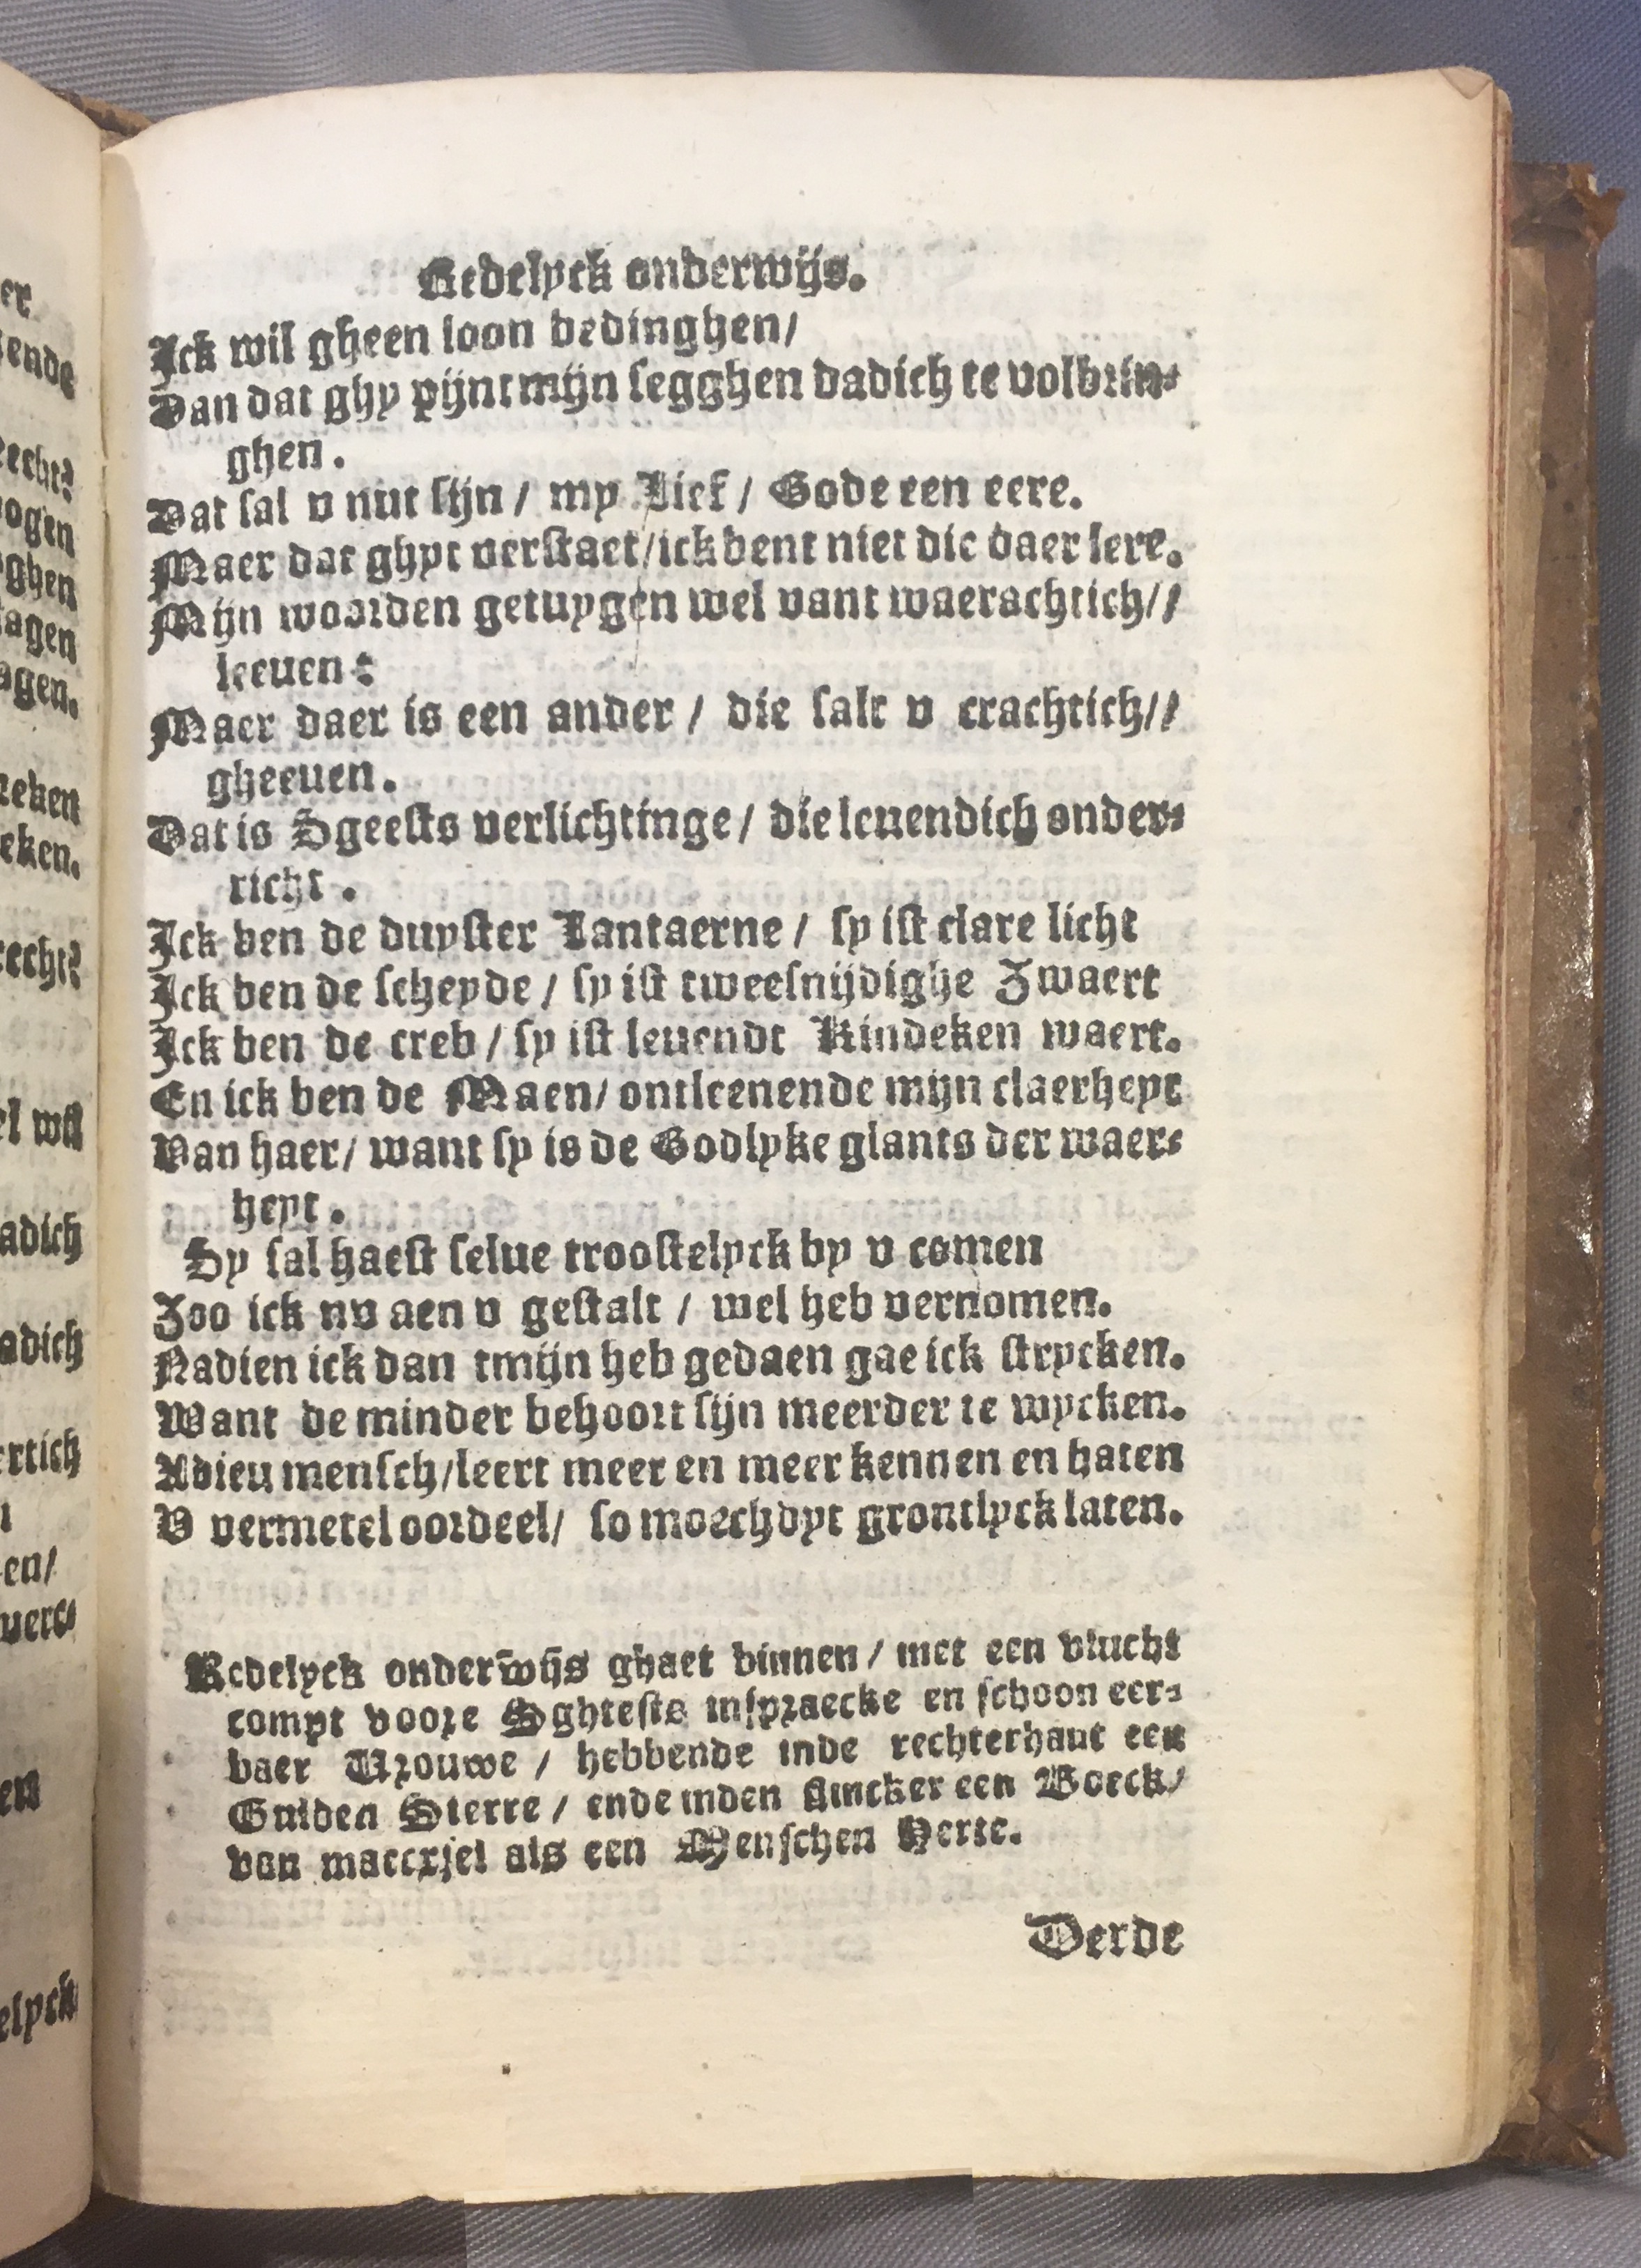 Redelyck onderwijs.
Ick wil gheen loon bedinghen/
Dan dat ghy pijnt mijn segghen dadich te volbrin-
ghen.
Dat sal v nut sijn / my Lief / Gode een eere.
Maer dat ghyt verstaet/ick bent niet die daer lere.
Mijn woorden getuygen wel vant waerachtich//
leeuen:
Maer daer is een ander / die salt v crachtich//
gheeuen.
Dat is Sgeests verlichtinge / die leuendich onder-
richt.
Ick ben de duyster Lantaerne / sy ist clare licht
Ick ben de scheyde / sy ist tweesnijdighe Zwaert
Ick ben de creb / sy ist leuendt Kindeken waert.
En ick ben de Maen/ ontleenende mijn claerheyt
Van haer/ want sy is de Godlyke glants der waer-
heyt.
Sy sal haest selue troostelyck by v comen
Zoo ick nv aen v gestalt / wel heb vernomen.
Nadien ick dan tmijn heb gedaen gae ick strycken.
Want de minder behoort sijn meerder te wycken.
Adieu mensch/leert meer en meer kennen en haten
V vermetel oordeel/ so moechdyt grontlyck laten.
Redelyck onderwijs ghaet binnen / met een vlucht
compt voore Sghtests inspraecke en schoon eer-
baer Vrouwe / hebbende inde rechterhant een
Gulden Sterre / ende inden slincker een Boeck/
van maecxsel als een Menschen Herte.
Derde
er
ende
recht?
ogen
ghen
agen
agen.
reken
eken.
recht?
el wil
adich
adich
ertich
en/
en
elyck